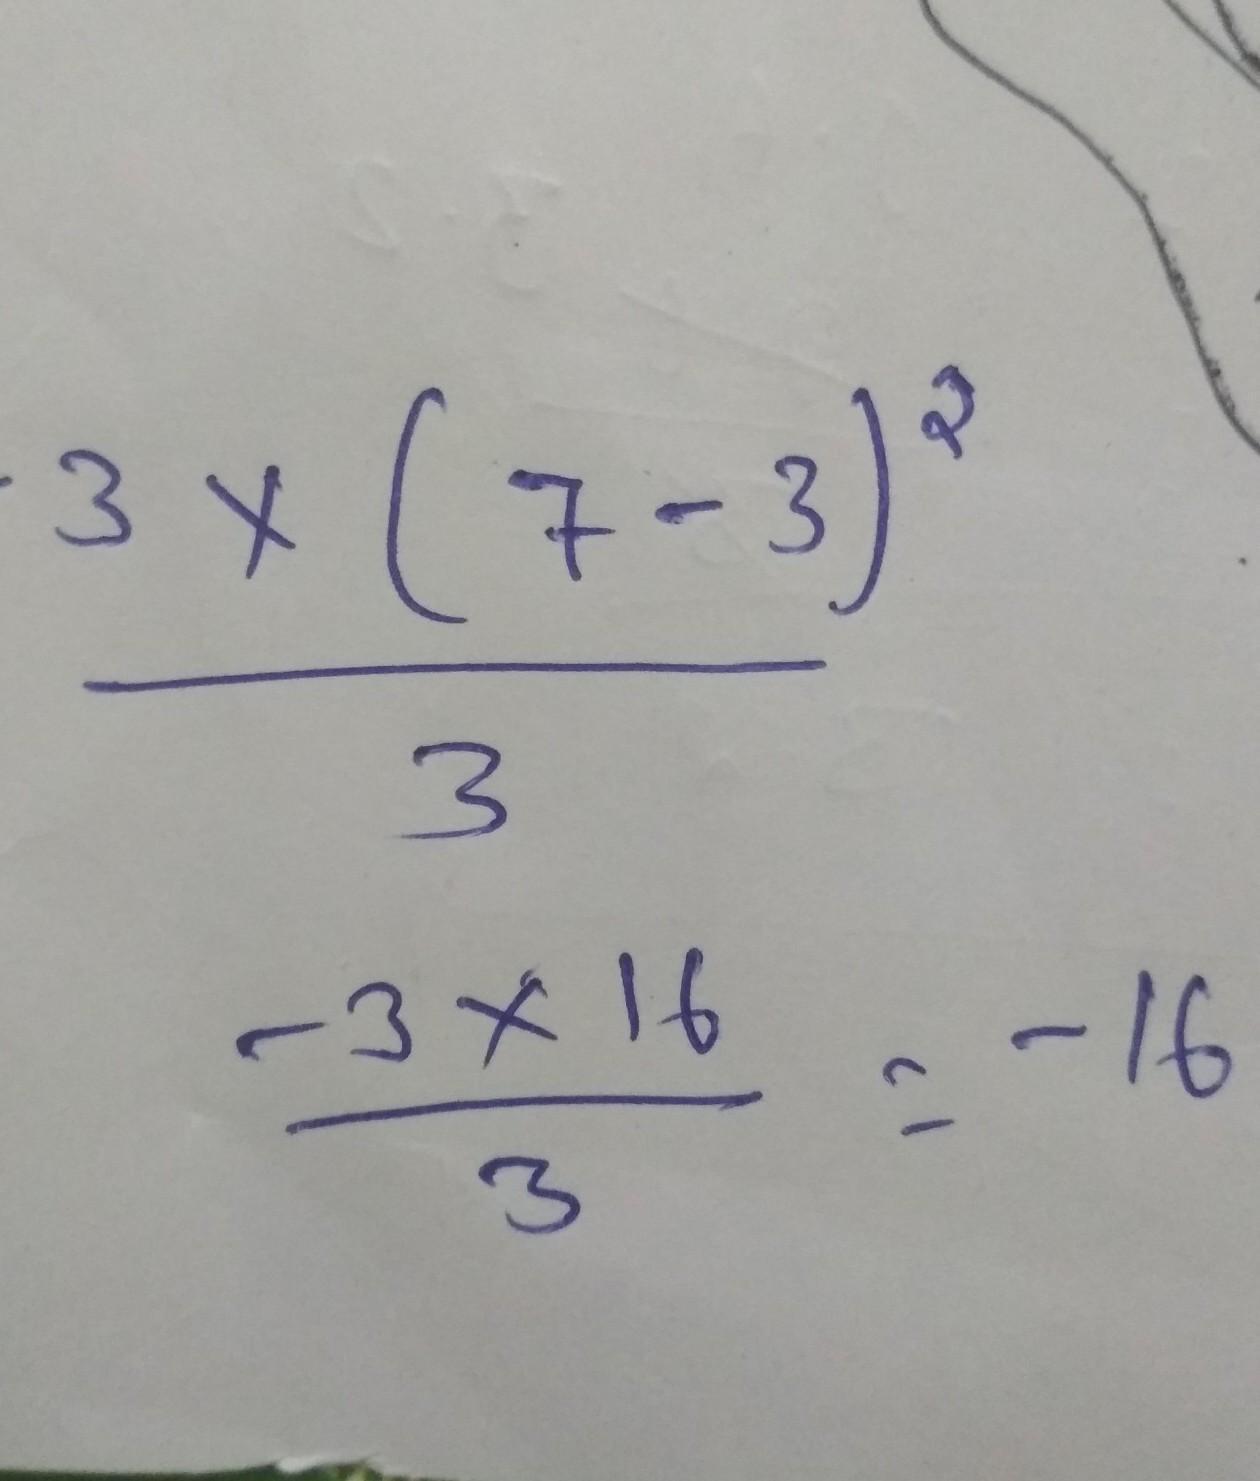 -3 × (7-3)²
3
-3 × 16 = -16
3